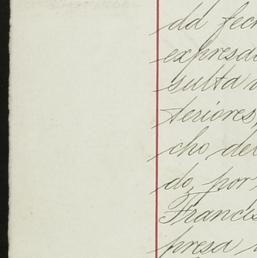 da fec
expresa
sulta
teriores,
cho de
do, por
Francis
presa